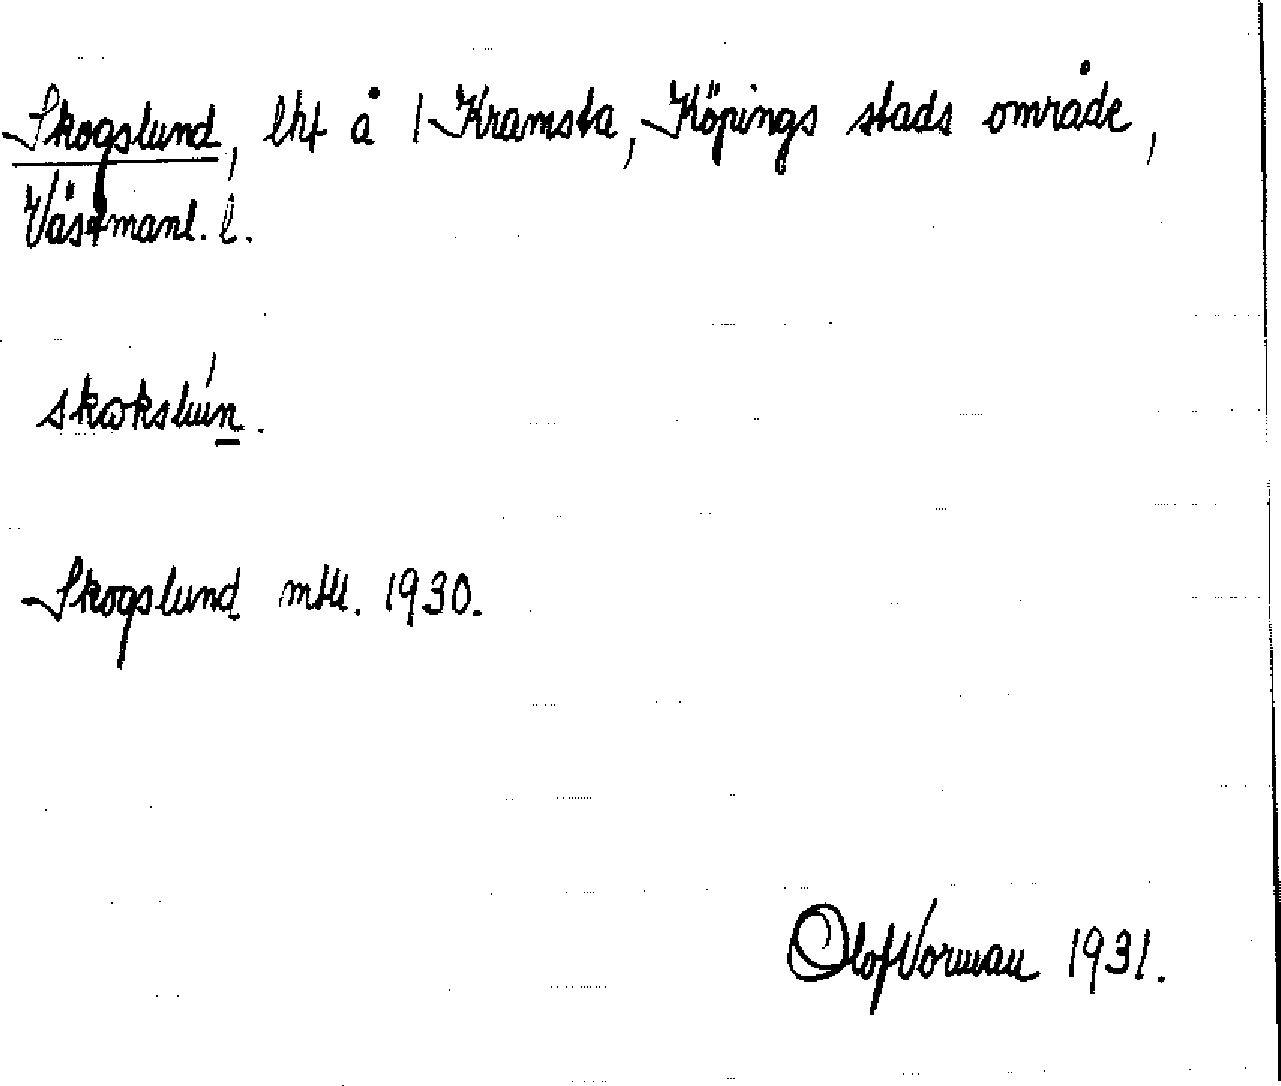 Skogslund, lht å 1 Kramsta, Köpings stads område,
Västmanl. l.
skωkslún.
Skogslund mtl. 1930.
Olof Vorman 1931.